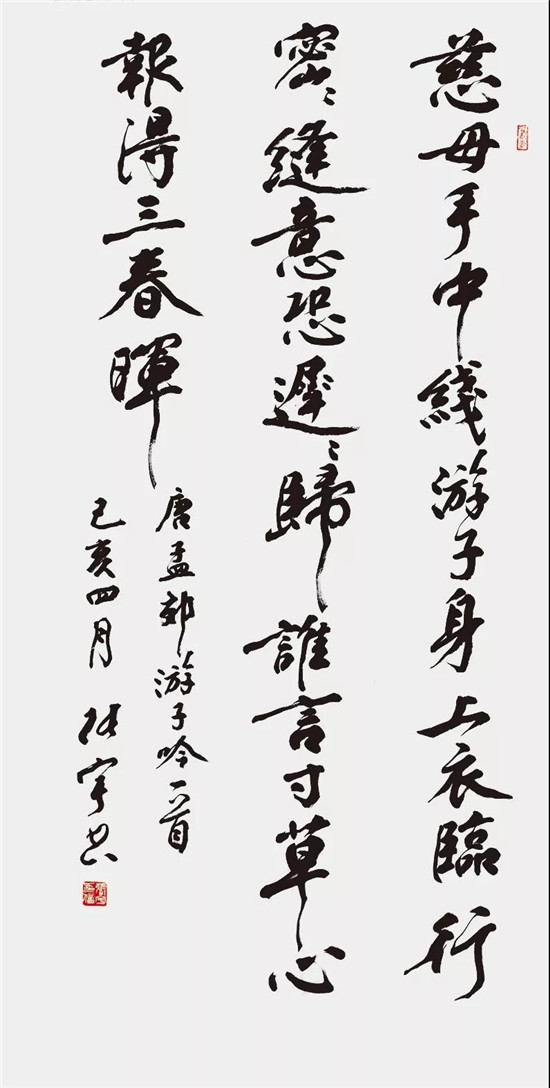 慈母手中綫游子身上衣臨行
密〻縫意恐遲〻歸誰言寸草心
報得三春暉
唐孟郊游子吟一首
己亥四月